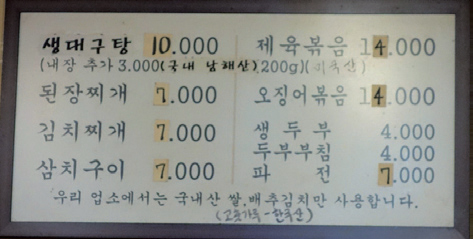 생대구탕 10.000
(내장 추가 3.000(국내 남해산)
된장찌개 7.000
김치찌개 7.000
삼치구이 7.000
제육볶음 14.000
200g)(미국산)
오징어볶음 14.000
생두부 4.000
두부부침 4.000
파전 7.000
우리 업소에서는 국내산 쌀,배추김치만 사용합니다.
(고춧가루-한국산)